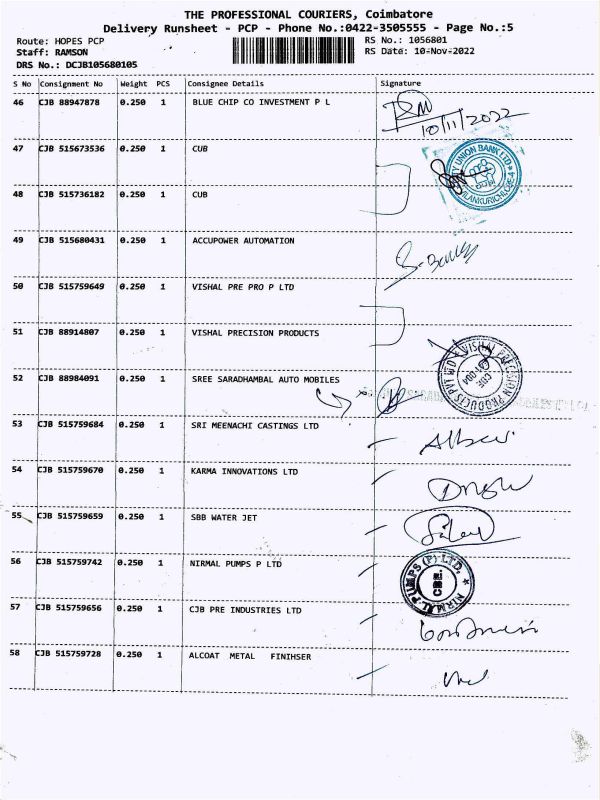 THE PROFESSIONAL COURIERS, Coimbatore
Delivery Runsheet - PCP - Phone No.:0422-3505555 - Page No.:5
Route: HOPES PCP RS No.: 1056801
Staff: RAMSON RS Date: 10-Nov-2022
DRS No.: DCJB105680105
S No Consignment No Weight PCS Consignee Details Signature
46 CJB 88947878 0.250 1 BLUE CHIP CO INVESTMENT P L
10/11/2022
47 CJB 515673536 0.250 1 CUB
UNION BANK LTD
48 CJB 515736182 0.250 1 CUB
49 CJB 515680431 0.250 1 ACCUPOWER AUTOMATION
50 CJB 515759649 0.250 1 VISHAL PRE PRO P LTD
51 CJB 88914807 0.250 1 VISHAL PRECISION PRODUCTS
VISHAL PRECISION PRODUCTS PVT LTD
CBE
52 CJB 88984091 0.250 1 SREE SARADHAMBAL AUTO MOBILES
53 CJB 515759684 0.250 1 SRI MEENACHI CASTINGS LTD
54 CJB 515759670 0.250 1 KARMA INNOVATIONS LTD
55 CJB 515759659 0.250 1 SBB WATER JET
56 CJB 515759742 0.250 1 NIRMAL PUMPS P LTD
NIRMAL PUMPS (P) LTD.
57 CJB 515759656 0.250 1 CJB PRE INDUSTRIES LTD
58 CJB 515759728 0.250 1 ALCOAT METAL FINIHSER